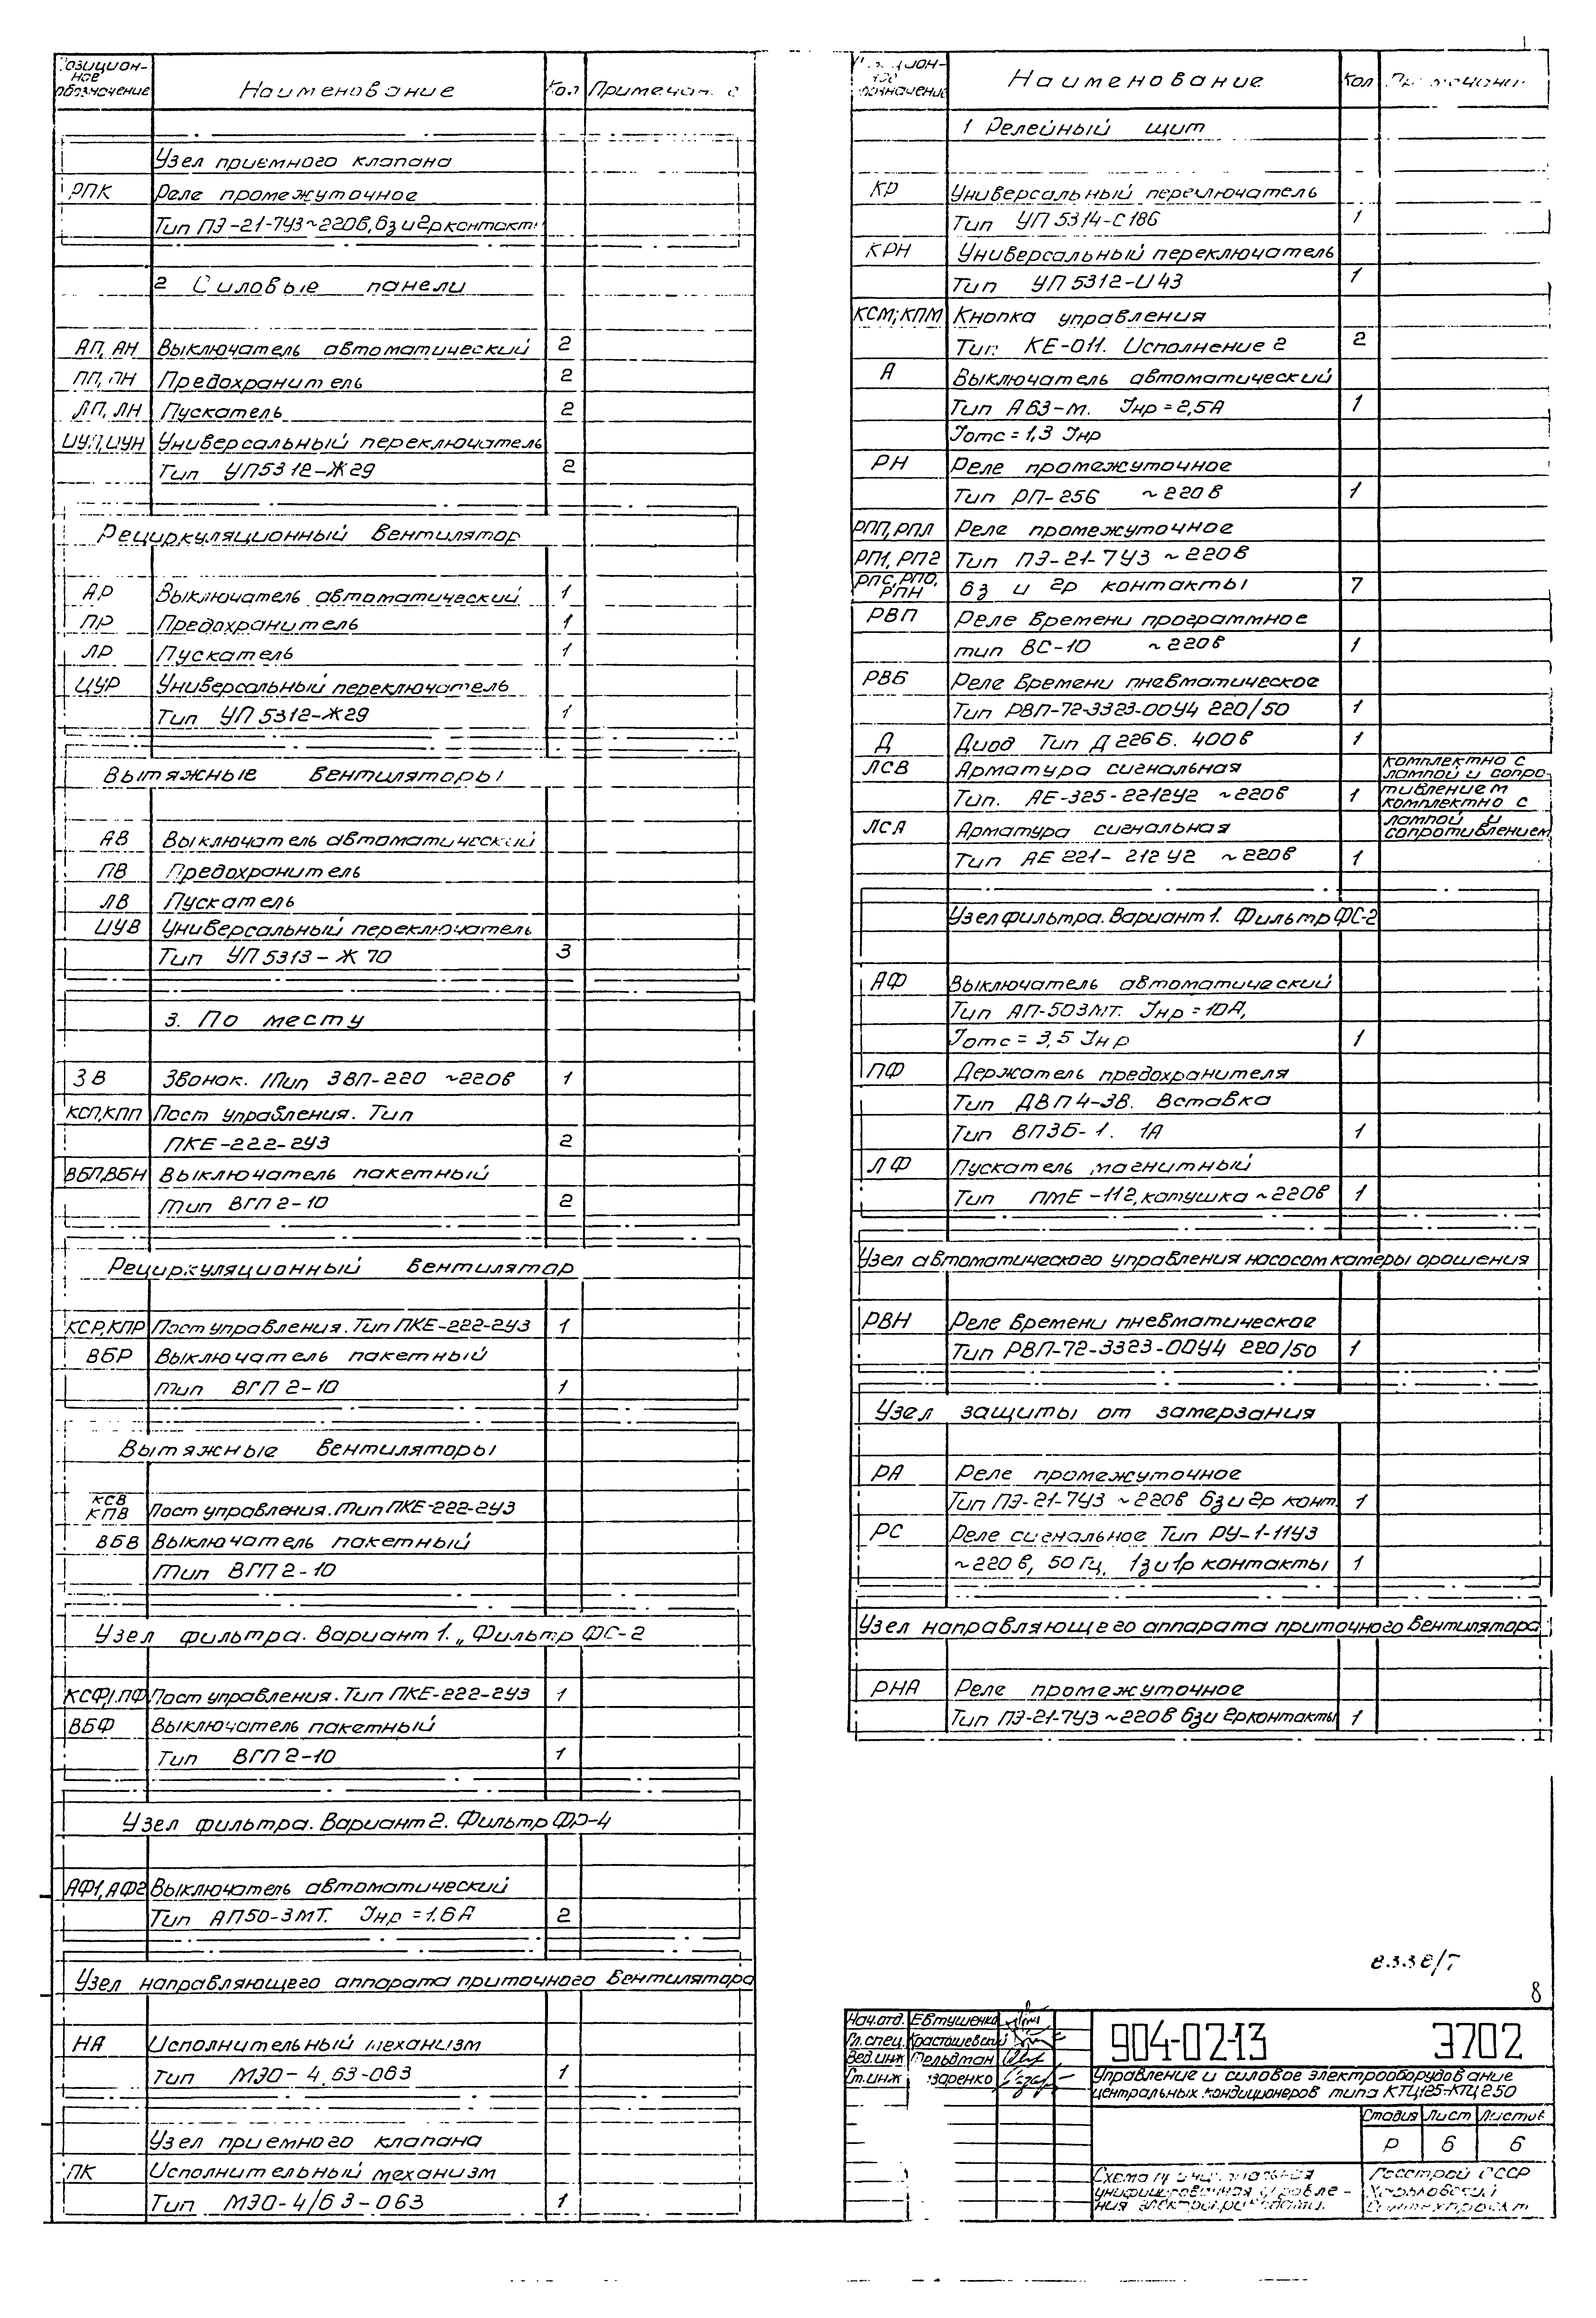 Позиционное обозначение Наименование Кол Примечание
Узел приемного клапана
РПК Реле промежуточное
Тип ПЭ-21-7У3~220в, 6з и 2р контакт
2 Силовые панели
АП, АН Выключатель автоматический 2
ПП, ПН Предохранитель 2
ЛП, ЛН Пускатель 2
ЦУП, ЦУН Универсальный переключатель
Тип УП5312-Ж29 2
Рециркуляционный вентилятор
АР Выключатель автоматический 1
ПР Предохранитель 1
ЛР Пускатель 1
ЦУР Универсальный переключатель
Тип УП 5312-Ж29 1
Вытяжные вентиляторы
АВ Выключатель автоматический
ПВ Предохранитель
ЛВ Пускатель
ЦУВ Универсальный переключатель
Тип УП 5313-Ж 70 3
3. По месту
ЗВ Звонок. Тип ЗВП-220 ~220в 1
КСП, КПП Пост управления. Тип
ПКЕ-222-2У3 2
ВБП, ВБН Выключатель пакетный
Тип ВГП 2-10 2
Рециркуляционный вентилятор
КСР, КПР Пост управления. Тип ПКЕ-222-2У3 1
ВБР Выключатель пакетный
тип ВГП 2-10 1
Вытяжные вентиляторы
КСВ
КПВ Пост управления. Тип ПКЕ-222-2У3
ВБВ Выключатель пакетный
Тип ВГП 2-10
Узел фильтра. Вариант 1. „Фильтр ФС-2
КСФ, ПФ Пост управления. Тип ПКЕ-222-2У3 1
ВБФ Выключатель пакетный
Тип ВГП 2-10 1
Узел фильтра. Вариант 2. Фильтр ФР-4
АФ1, АФ2 Выключатель автоматический
Тип АП50-3МТ. Iнр = 1.6А 2
Узел направляющего аппарата приточного вентилятора
НА Исполнительный механизм
Тип МЭО-4.63-063 1
Узел приемного клапана
ПК Исполнительный механизм
Тип МЭО-4/63-063 1
Наименование Кол
1 Релейный щит
КР Универсальный переключатель
Тип УП 5314-С186 1
КРН Универсальный переключатель
Тип УП 5312-И43 1
КСМ; КПМ Кнопка управления
Тип КЕ-011. Исполнение 2 2
А Выключатель автоматический
Тип А63-м. Iнр = 2,5А 1
Iотс = 1,3 Iнр
РН Реле промежуточное
Тип РП-256 ~220в 1
РПП, РПЛ Реле промежуточное
РП1, РП2 Тип ПЭ-21-7У3 ~220в
РПС, РПО, РПН 6з и 2р контакты 7
РВП Реле времени программное
тип ВС-10 ~220в 1
РВБ Реле времени пневматическое
Тип РВП-72-3323-00У4 220/50 1
Д Диод Тип Д 226Б. 400в 1
ЛСВ Арматура сигнальная комплектно с лампой и сопро-
Тип. АЕ-325-2212У2 ~220в 1 тивлением комплектно с
ЛСА Арматура сигнальная лампой и сопротивлением
Тип АЕ 221-212У2 ~220в 1
Узел фильтра. Вариант 1. Фильтр ФС-2
АФ Выключатель автоматический
Тип АП-503МТ. Iнр = 10А,
Iотс = 3,5 Iнр 1
ПФ Держатель предохранителя
Тип ДВП4-3В. Вставка
Тип ВП3Б-1. 1А 1
ЛФ Пускатель магнитный
Тип ПМЕ-112, катушка ~220в 1
Узел автоматического управления насосом камеры орошения
РВН Реле времени пневматическое
Тип РВП-72-3323-00У4 220/50 1
Узел защиты от замерзания
РА Реле промежуточное
Тип ПЭ-21-7У3 ~220в 6з и 2р конт. 1
РС Реле сигнальное Тип РУ-1-11У3
~220в, 50 Гц, 1з и 1р контакты 1
Узел направляющего аппарата приточного вентилятора
РНА Реле промежуточное
Тип ПЭ-21-7У3 ~220в 6з и 2р контакты 1
8
Нач.отд. Евтушенко
Гл.спец.
Вед.инж
Ст.инж
904-02-13 Э702
Управление и силовое электрооборудование
центральных кондиционеров типа КТЦ125-КТЦ250
Стадия Лист Листов
Р 6 6
Схема принципиальная Госстрой СССР
унифицированная управле- Харьковский
ния электроприводами. Сантехпроект